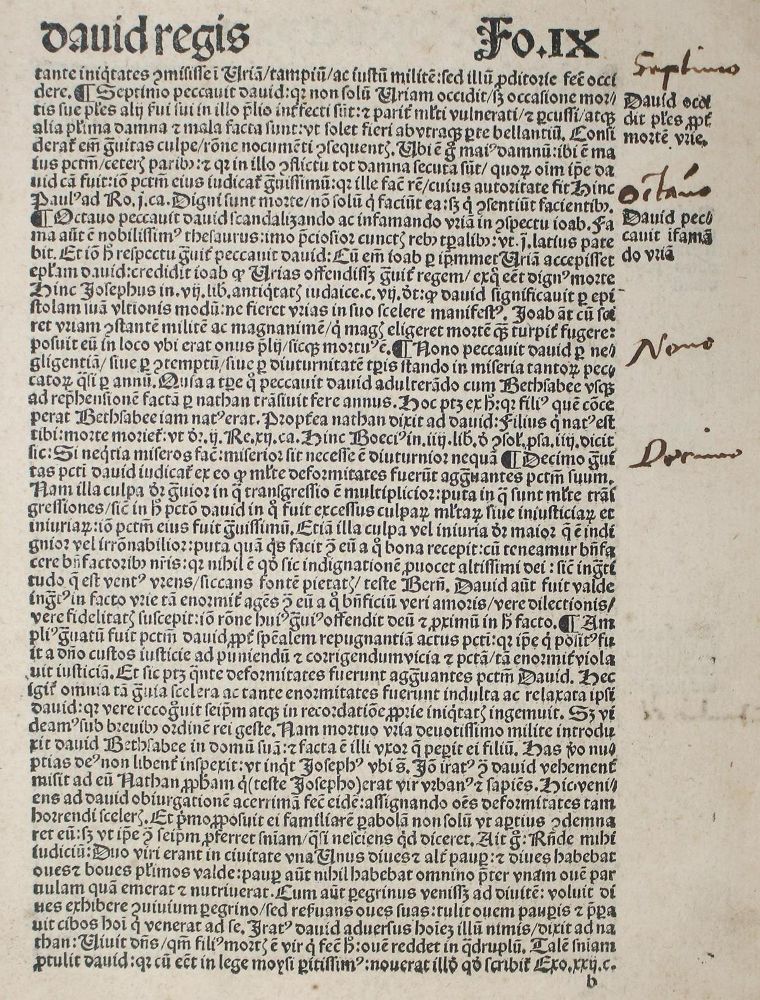 dauid regis Fo.IX
tante iniq̃tates ↄmisisse ĩ Uriã/tampiũ/ac iustũ militẽ:sed illũ ꝓditorie fec̃ occi
dere.¶Septimo peccauit dauid:qꝛ non solũ Uriam occidit/sꝫ occasione moꝛ/
tis sue pl̃es alij fui sui in illo p̃lio int̃fecti sũt: ⁊ parit̃ ml̃ti vulnerati/ ⁊ ꝑcussi/atqꝫ
alia pl̃ima damna ⁊ mala facta sunt: vt solet fieri abvtraqꝫ ꝑte bellantiũ. Consi
derat̃ em̃ g̃uitas culpe/rõne nocumẽti ↄsequentꝭ. Ubi ẽ g̃ maiꝰ damnũ:ibi ẽ ma
ius pctm̃/ceterꝭ paribꝰ: ⁊ qꝛ in illo ↄflictu tot damna secuta sũt/ quoꝝ oim̃ ip̃e da
uid cã fuit:iõ pctm̃ eius iudicat̃ g̃uissimũ:qꝛ ille fac̃ rẽ/cuius autoritate fit Hinc
Paulꝰ ad Ro.j.ca. Digni sunt morte/nõ solũ q̃ faciũt ea:sꝫ q̃ ↄsentiũt facientibꝰ.
¶Octauo peccauit dauid scandalizando ac infamando vriã in ↄspectu ioab. Fa
ma aũt ẽ nobilissimꝰ thesaurus:imo p̃ciosior cunctꝭ rebꝰ tp̃alibꝰ: vt.j.latius pate
bit. Et iõ h̃ respectu g̃uit̃ peccauit dauid: Cũ em̃ ioab ꝑ ip̃mmet Uriã accepisset
ep̃lam dauid:credidit ioab ꝙ Urias offendissꝫ g̃uit̃ regem/ exq̃ eẽt dignꝰ morte
Hinc Josephus in.vij.lib.antiq̃tatꝭ iudaice.c.vij.dt̃:ꝙ dauid significauit ꝑ epi
stolam suã vltionis modũ:ne fieret vrias in suo scelere manifestꝰ. Joab aũt cũ sci
ret vriam ↄstantẽ militẽ ac magnanimẽ/q̃ magꝭ eligeret mortẽ qꝫ̃ turpit̃ fugere:
posuit eũ in loco vbi erat onus p̃lij/sicqꝫ mortuꝰ ẽ.¶Nono peccauit dauid ꝑ ne/
gligentiã/ siue ꝑ ↄtemptũ/siue ꝑ diuturnitatẽ tp̃ris stando in miseria tantoꝝ pec/
catoꝝ q̃si ꝑ annũ. Quia a tp̃e q̊ peccauit dauid adulterãdo cum Bethsabee vsqꝫ
ad rep̃hensionẽ factã ꝑ nathan trãsiuit fere annus. Hoc ptꝫ ex h̃:qꝛ filiꝰ quẽ cõce
perat Bethsabee iam natꝰerat. Propt̃ea nathan dixit ad dauid: Filius q̃ natꝰest
tibi:morte moriet̃:vt dr̃.ij.Re.xij.ca. Hinc Boeciꝰ in.iiij.lib.ð ↄsol.psa.iiij.dicit
sic:Si neq̃tia miseros fac̃:miserior sit necesse ẽ diuturnior nequã ¶Decimo g̃ui
tas pcti dauid iudicat̃ ex eo ꝙ ml̃te deformitates fuerũt agg̃uantes pctm̃ suum.
Nam illa culpa dr̃ g̃uior in q̃ transgressio ẽ multiplicior:puta in q̃ sunt ml̃te trãs
gressiones/sic̃ in h̃ pctõ dauid in q̊ fuit excessus culpaꝝ ml̃taꝝ siue iniusticiaꝝ et
iniuriaꝝ:iõ pctm̃ eius fuit g̃uissimũ. Etiã illa culpa vel iniuria dr̃ maior q̃ ẽ indi
gnior vel irrõnabilior:puta quã q̃s facit ↄ̃ eũ a q̊ bona recepit:cũ teneamur bñfa
cere bñfactoribꝰ nr̃is:qꝛ nihil ẽ qð sic indignationẽ ꝓuocet altissimi dei : sic̃ ing̃ti
tudo q̃ est ventꝰ vrens/siccans fontẽ pietatꝭ/ teste Berñ. Dauid aũt fuit valde
ing̃tꝰin facto vrie tã enormit̃ agẽs ↄ̃ eũ a q̊ bñficiũ veri amoris/vere dilectionis/
vere fidelitatꝭ suscepit:iõ rõne huiꝰg̃uiꝰoffendit deũ ⁊ ꝓximũ in h̃ facto.¶Am
pliꝰg̃uatũ fuit pctm̃ dauid ꝓpt̃ sp̃ealem repugnantiã actus pcti:qꝛ ip̃e q̃ positꝰfu
it a dño custos iusticie ad puniendũ ⁊ corrigendumvicia ⁊ pctã/tã enormit̃ viola
uit iusticiã. Et sic ptꝫ q̃nte deformitates fuerunt agg̃uantes pctm̃ Dauid. Hec
igit̃ omnia tã g̃uia scelera ac tante enormitates fuerunt indulta ac relaxata ipsi
dauid:qꝛ vere recog̊uit seip̃m atqꝫ in recordatiõe ꝓprie iniq̃tatꝭ ingemuit. Sꝫ vi
deamꝰsub breuibꝰ ordinẽ rei geste. Nam mortuo vria deuotissimo milite introdu
xit dauid Bethsabee in domũ suã: ⁊ facta ẽ illi vxor q̃ peꝑit ei filiũ. Has v̊o nu/
ptias deꝰ non libent̃ inspexit: vt inq̃t Josephꝰ vbi s̃. Jõ iratꝰ ↄ̃ dauid vehement̃
misit ad eũ Nathan ꝓpham q̃(teste Josepho)erat vir vrbanꝰ ⁊ sapiẽs. Hicveni/
ens ad dauid obiurgationẽ acerrimã fec̃ eidẽ:assignando oẽs deformitates tam
horrendi scelerꝭ. Et p̃mo ꝓposuit ei familiarẽ ꝑabolã non solũ vt aꝑtius ↄdemna
ret eũ:sꝫ vt ip̃e ↄ̃ seip̃m ꝓferret sniam/q̃si nesciens qd̃ diceret. Ait g̃: Rñde mihi
iudiciũ:Duo viri erant in ciuitate vna Unus diues ⁊ alt̃ pauꝑ: ⁊ diues habebat
oues ⁊ boues pl̃imos valde:pauꝑ aũt nihil habebat omnino p̃ter vnam ouẽ par
uulam quã emerat ⁊ nutriuerat. Cum aũt ꝑegrinus venissꝫ ad diuitẽ: voluit di
ues exhibere ↄuiuium ꝑegrino/sed refuans oues suas:tulit ouem pauꝑis ⁊ p̃pa
uit cibos hoĩ q̃ venerat ad se. Iratꝰ dauid aduersus hoĩeꝫ illũ nimis/dixit ad na
than: Uiuit dñs/qm̃ filiꝰmortꝭ ẽ vir q̃ fec̃ h̃:ouẽ reddet in q̃druplũ. Talẽ sniam
ꝓtulit dauid:qꝛ cũ eẽt in lege moysi ꝑitissimꝰ:nouerat illð qð scribit̃ Exo.xxij.c.
b
Septimo
Dauid occi
dit pl̃es ꝓpt̃
mortẽ vrie.
Octauo
Dauid pec
cauit ifamã
do vriã
Nono
Decimo